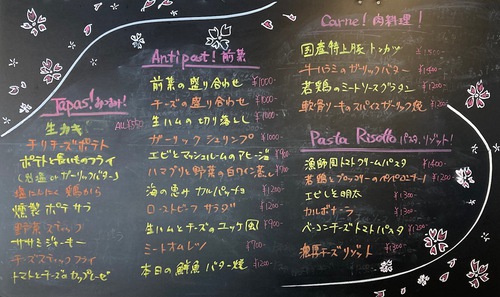 Tapas!
ALL ¥550
生カキ
チリチーズポテト
ポテトと長いものフライ
塩にんにく 鶏から
燻製 ポテサラ
野菜スティック
ササミジャーキー
チーズスティックフライ
トマトとチーズのカップレーゼ
Antipast! 前菜
前菜の盛り合わせ ¥1000-
チーズの盛り合わせ ¥1000-
生ハムの切り落とし ¥1000-
ガーリックシュリンプ ¥1000-
エビとマッシュルームのアヒージョ ¥900-
ハマグリと野菜の白ワイン蒸し
海の恵み カルパッチョ ¥1200-
ローストビーフ サラダ ¥1200-
生ハムとチーズのユッケ風 ¥900-
ミートオムレツ ¥900-
本日の鮮魚 バター焼 ¥1200-
Carne! 肉料理!
国産特上豚トンカツ ¥1500-
牛ハラミのガーリックバター
若鶏のミートソースグラタン ¥1200-
軟骨ソーキのスパイスガーリック焼 ¥1200-
Pasta Risotto パスタ、リゾット!
漁師風トマトクリームパスタ ¥1400-
若鶏とブロッコリーのペペロンチーノ ¥1200-
エビしそ明太 ¥1300-
カルボナーラ ¥1300-
ベーコンチーズトマトパスタ
濃厚チーズリゾット ¥1300-